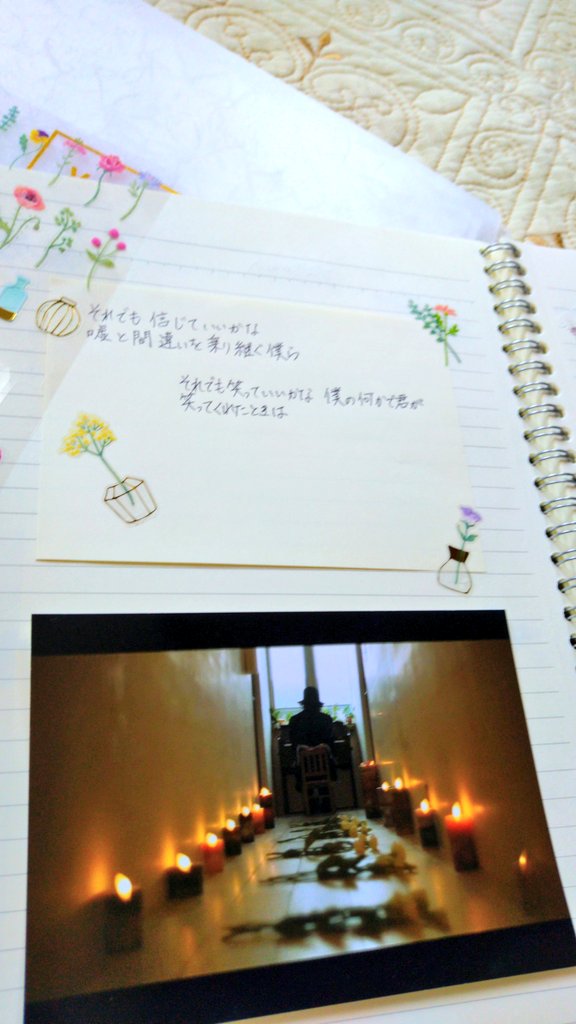 それでも信じていいかな
嘘と間違いを乗り継ぐ僕ら
それでも笑っていいかな 僕の何かで君が
笑ってくれたときは